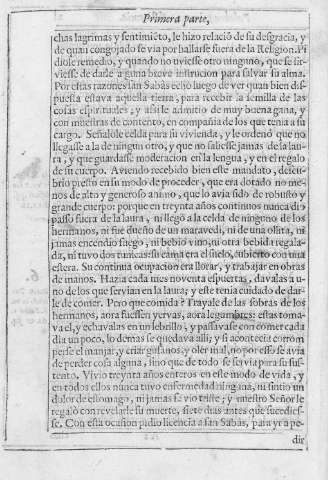 Primera parte,
chas lagrimas y sentimiẽto, le hizo relació de su desgracia, y
de quan congojado se via por hallarse fuera de la Religion. Pi
diole remedio, y quando no uviesse otro ninguno, que se sir-
viesse de darle alguna breve instrucion para salvar su alma.
Por estas razones san Sabas echò luego de ver quan bien dis-
puesta estava aquella tierra, para recebir la semilla de las
cosas espirituales; y assi le admitio de muy buena gana, y
con muestras de contento, en compañia de los que tenia a su
cargo. Señalòle celda para su vivienda, y le ordenò que no
llegasse a la de ningun otro, y que no saliesse jamas de la lau-
ra, y que guardasse moderacion en la lengua, y en el regalo
de su cuerpo. Aviendo recebido bien este mandato, descu-
brio presto en su modo de proceder, que era dotado no me-
nos de alto y generoso animo, que lo avia sido de robusto y
grande cuerpo: porque en treynta años continuos nunca dio
passo fuera de la laura, ni llegò a la celda de ninguno de los
hermanos, ni fue dueño de un maravedi, ni de una ollita, ni
jamas encendio fuego, ni bebio vino, ni otra bebida regala-
da, ni tuvo dos tunicas: su cama era el suelo, cubierto con una
estera. Su continua ocupacion era llorar, y trabajar en obras
de manos. Hazia cada mes noventa espuertas, davalas a u-
no de los que servian en la laura; y este tenia cuidado de dar-
le de comer. Pero que comida? Trayale de las sobras de los
hermanos, aora fuessen yervas, aora legumbres: estas toma-
va el, y echavalas en un lebrillo, y passavase con comer cada
dia un poco, lo demas se quedava alli; y si acontecia corrom
perse el manjar, y criar gusanos, y oler mal, no por esso se avia
de perder cosa alguna, sino que de todo se servia para su sus-
tento. Vivio treynta años enteros en este modo de vida, y
en todos ellos nunca tuvo enfermedad ninguna, ni sintio un
dolor de estomago, ni jamas se vio triste; y nuestro Señor le
regalò con revelarle su muerte, siete dias antes que sucedies-
se. Con esta ocasion pidio licencia a san Sabas, para yr a pe-
dir